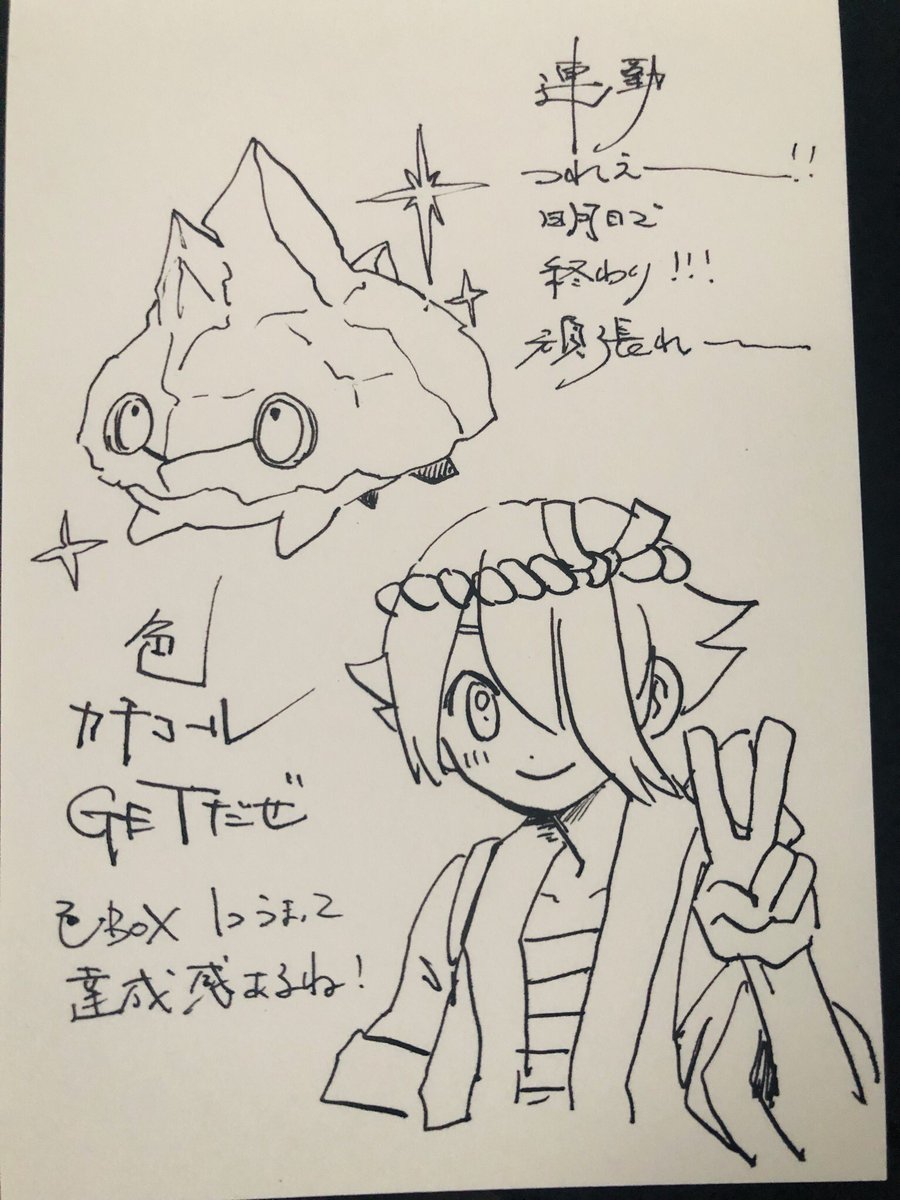 連勤
つれえー!!
明日で
終わり!!!
頑張れー
色
カチコール
GETだぜ
色BOX 1つうまって
達成感あるね!